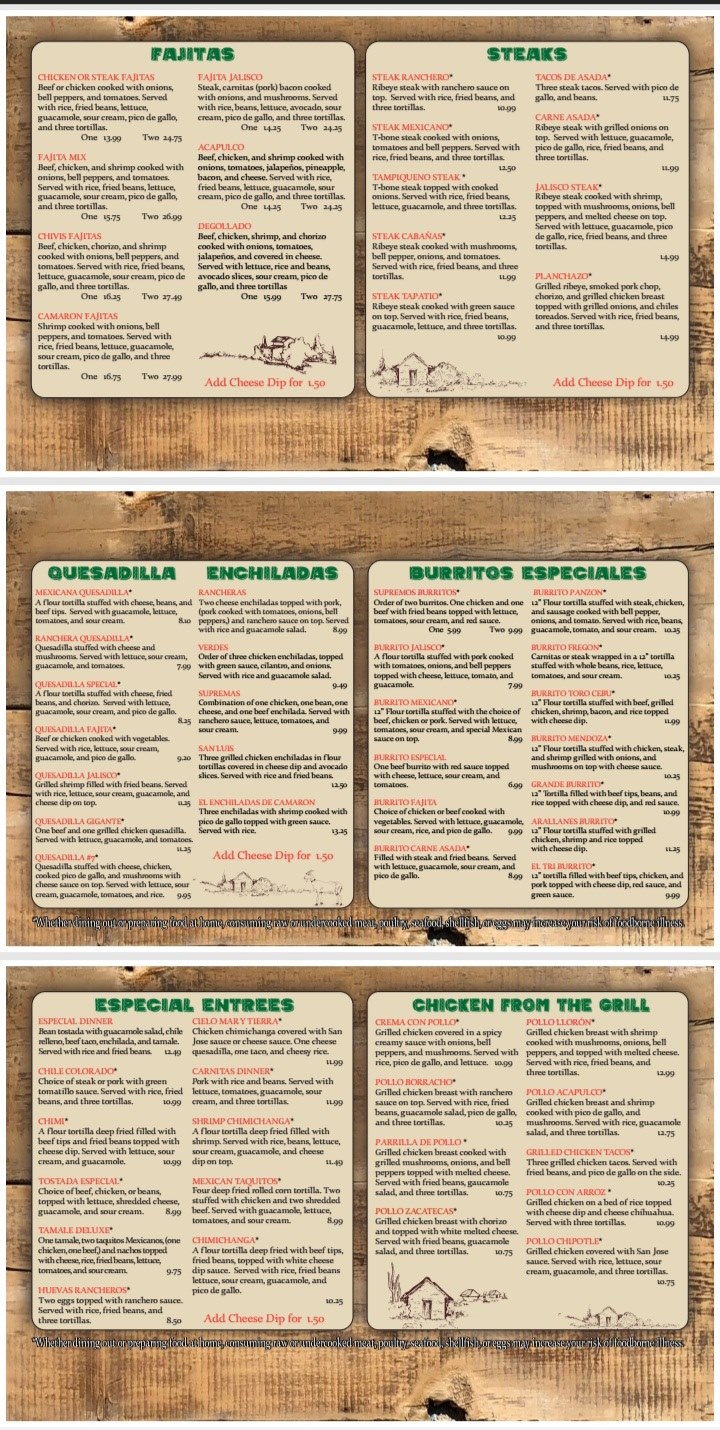 FAJITAS
CHICKEN OR STEAK FAJITAS
Beef or chicken cooked with onions,
bell peppers, and tomatoes. Served
with rice, fried beans, lettuce,
guacamole, sour cream, pico de gallo,
and three tortillas.
One 13.99 Two 24.75
FAJITA MIX
Beef, chicken, and shrimp cooked with
onions, bell peppers, and tomatoes.
Served with rice, fried beans, lettuce,
guacamole, sour cream, pico de gallo,
and three tortillas.
One 15.75 Two 26.99
CHIVIS FAJITAS
Beef, chicken, chorizo, and shrimp
cooked with onions, bell peppers, and
tomatoes. Served with rice, fried beans,
lettuce, guacamole, sour cream, pico de
gallo, and three tortillas.
One 16.25 Two 27.49
CAMARON FAJITAS
Shrimp cooked with onions, bell
peppers, and tomatoes. Served with
rice, fried beans, lettuce, guacamole,
sour cream, pico de gallo, and three
tortillas.
One 16.75 Two 27.99
FAJITA JALISCO
Steak, carnitas (pork) bacon cooked
with onions, and mushrooms. Served
with rice, beans, lettuce, avocado, sour
cream, pico de gallo, and three tortillas.
One 14.25 Two 24.25
ACAPULCO
Beef, chicken, and shrimp cooked with
onions, tomatoes, jalapeños, pineapple,
bacon, and cheese. Served with rice,
fried beans, lettuce, guacamole, sour
cream, pico de gallo, and three tortillas.
One 14.25 Two 24.25
DEGOLLADO
Beef, chicken, shrimp, and chorizo
cooked with onions, tomatoes,
jalapeños, and covered in cheese.
Served with lettuce, rice and beans,
avocado slices, sour cream, pico de
gallo, and three tortillas
One 15.99 Two 27.75
Add Cheese Dip for 1.50
STEAKS
STEAK RANCHERO*
Ribeye steak with ranchero sauce on
top. Served with rice, fried beans, and
three tortillas. 10.99
STEAK MEXICANO*
T-bone steak cooked with onions,
tomatoes and bell peppers. Served with
rice, fried beans, and three tortillas.
12.50
TAMPIQUENO STEAK *
T-bone steak topped with cooked
onions. Served with rice, fried beans,
lettuce, guacamole, and three tortillas.
12.25
STEAK CABAÑAS*
Ribeye steak cooked with mushrooms,
bell pepper, onions, and tomatoes.
Served with rice, fried beans, and three
tortillas. 11.99
STEAK TAPATIO*
Ribeye steak cooked with green sauce
on top. Served with rice, fried beans,
guacamole, lettuce, and three tortillas.
10.99
TACOS DE ASADA*
Three steak tacos. Served with pico de
gallo, and beans. 11.75
CARNE ASADA*
Ribeye steak with grilled onions on
top. Served with lettuce, guacamole,
pico de gallo, rice, fried beans, and
three tortillas.
11.99
JALISCO STEAK*
Ribeye steak cooked with shrimp,
topped with mushrooms, onions, bell
peppers, and melted cheese on top.
Served with lettuce, guacamole, pico
de gallo, rice, fried beans, and three
tortillas.
14.99
PLANCHAZO*
Grilled ribeye, smoked pork chop,
chorizo, and grilled chicken breast
topped with grilled onions, and chiles
toreados. Served with rice, fried beans,
and three tortillas.
14.99
Add Cheese Dip for 1.50
QUESADILLA
MEXICANA QUESADILLA*
A flour tortilla stuffed with cheese, beans, and
beef tips. Served with guacamole, lettuce,
tomatoes, and sour cream. 8.10
RANCHERA QUESADILLA*
Quesadilla stuffed with cheese and
mushrooms. Served with lettuce, sour cream,
guacamole, and tomatoes. 7.99
QUESADILLA SPECIAL*
A flour tortilla stuffed with cheese, fried
beans, and chorizo. Served with lettuce,
guacamole, sour cream, and pico de gallo.
8.25
QUESADILLA FAJITA*
Beef or chicken cooked with vegetables.
Served with rice, lettuce, sour cream,
guacamole, and pico de gallo. 9.20
QUESADILLA JALISCO*
Grilled shrimp filled with fried beans. Served
with rice, lettuce, sour cream, guacamole, and
cheese dip on top. 11.25
QUESADILLA GIGANTE*
One beef and one grilled chicken quesadilla.
Served with lettuce, guacamole, and tomatoes.
11.25
QUESADILLA #7*
Quesadilla stuffed with cheese, chicken,
cooked pico de gallo, and mushrooms with
cheese sauce on top. Served with lettuce, sour
cream, guacamole, tomatoes, and rice. 9.95
ENCHILADAS
RANCHERAS
Two cheese enchiladas topped with pork,
(pork cooked with tomatoes, onions, bell
peppers,) and ranchero sauce on top. Served
with rice and guacamole salad. 8.99
VERDES
Order of three chicken enchiladas, topped
with green sauce, cilantro, and onions.
Served with rice and guacamole salad.
9.49
SUPREMAS
Combination of one chicken, one bean, one
cheese, and one beef enchilada. Served with
ranchero sauce, lettuce, tomatoes, and
sour cream. 9.99
SAN LUIS
Three grilled chicken enchiladas in flour
tortillas covered in cheese dip and avocado
slices. Served with rice and fried beans.
12.50
EL ENCHILADAS DE CAMARON
Three enchiladas with shrimp cooked with
pico de gallo topped with green sauce.
Served with rice. 13.25
Add Cheese Dip for 1.50
BURRITOS ESPECIALES
SUPREMOS BURRITOS*
Order of two burritos. One chicken and one
beef with fried beans topped with lettuce,
tomatoes, sour cream, and red sauce.
One 5.99 Two 9.99
BURRITO JALISCO*
A flour tortilla stuffed with pork cooked
with tomatoes, onions, and bell peppers
topped with cheese, lettuce, tomato, and
guacamole. 7.99
BURRITO MEXICANO*
12" Flour tortilla stuffed with the choice of
beef, chicken or pork. Served with lettuce,
guacamole, tomatoes, and special Mexican
sauce on top. 8.99
BURRITO ESPECIAL
One beef burrito with red sauce topped
with cheese, lettuce, sour cream, and
tomatoes. 6.99
BURRITO FAJITA
Choice of chicken or beef cooked with
vegetables. Served with lettuce, guacamole,
sour cream, rice, and pico de gallo. 9.99
BURRITO CARNE ASADA*
Filled with steak and fried beans. Served
with lettuce, guacamole, sour cream, and
pico de gallo. 8.99
BURRITO PANZON*
12" Flour tortilla stuffed with steak, chicken,
and sausage cooked with bell pepper,
onions, and tomato. Served with rice, beans,
guacamole, tomato, and sour cream. 10.25
BURRITO FREGON*
Carnitas or steak wrapped in a 12" tortilla
stuffed with whole beans, rice, lettuce,
tomatoes, and sour cream. 10.25
BURRITO TORO CEBU*
12" Flour tortilla stuffed with beef, grilled
chicken, shrimp, bacon, and rice topped
with cheese dip. 11.99
BURRITO MENDOZA*
12" Flour tortilla stuffed with chicken, steak,
and shrimp grilled with onions, and
mushrooms on top with cheese sauce.
10.25
GRANDE BURRITO*
12" Tortilla filled with beef tips, beans, and
rice topped with cheese dip, and red sauce.
10.99
ARALLANES BURRITO*
12" Flour tortilla stuffed with grilled
chicken, shrimp and rice topped
with cheese dip. 11.25
EL TRI BURRITO*
12" tortilla filled with beef tips, chicken, and
pork topped with cheese dip, red sauce, and
green sauce. 9.99
*Whether dining out or preparing food at home, consuming raw or undercooked meat, poultry, seafood, shellfish, or eggs may increase your risk of foodborne illness.
ESPECIAL ENTREES
ESPECIAL DINNER
Bean tostada with guacamole salad, chile
relleno, beef taco, enchilada, and tamale.
Served with rice and fried beans. 12.49
CHILE COLORADO*
Choice of steak or pork with green
tomatillo sauce. Served with rice, fried
beans, and three tortillas. 10.99
CHIMI*
A flour tortilla deep fried filled with
beef tips and fried beans topped with
cheese dip. Served with lettuce, sour
cream, and guacamole. 10.99
TOSTADA ESPECIAL*
Choice of beef, chicken, or beans,
topped with lettuce, shredded cheese,
guacamole, and sour cream. 8.99
TAMALE DELUXE*
One tamale, two taquitos Mexicanos, (one
chicken, one beef,) and nachos topped
with cheese, rice, fried beans, lettuce,
tomatoes, and sour cream. 9.75
HUEVAS RANCHEROS*
Two eggs topped with ranchero sauce.
Served with rice, fried beans, and
three tortillas. 8.50
CIELO MAR Y TIERRA*
Chicken chimichanga covered with San
Jose sauce or cheese sauce. One cheese
quesadilla, one taco, and cheesy rice.
11.99
CARNITAS DINNER*
Pork with rice and beans. Served with
lettuce, tomatoes, guacamole, sour
cream, and three tortillas. 11.99
SHRIMP CHIMICHANGA*
A flour tortilla deep fried filled with
shrimp. Served with rice, beans, lettuce,
sour cream, guacamole, and cheese
dip on top. 11.49
MEXICAN TAQUITOS*
Four deep fried rolled corn tortilla. Two
stuffed with chicken and two shredded
beef. Served with guacamole, lettuce,
tomatoes, and sour cream. 8.99
CHIMICHANGA*
A flour tortilla deep fried with beef tips,
fried beans, topped with white cheese
dip sauce. Served with rice, fried beans
lettuce, sour cream, guacamole, and
pico de gallo.
10.25
Add Cheese Dip for 1.50
CHICKEN FROM THE GRILL
CREMA CON POLLO*
Grilled chicken covered in a spicy
creamy sauce with onions, bell
peppers, and mushrooms. Served with
rice, pico de gallo, and lettuce. 10.99
POLLO BORRACHO*
Grilled chicken breast with ranchero
sauce on top. Served with rice, fried
beans, guacamole salad, pico de gallo,
and three tortillas. 10.25
PARRILLA DE POLLO *
Grilled chicken breast cooked with
grilled mushrooms, onions, and bell
peppers topped with melted cheese.
Served with rice, fried beans, gaucamole
salad, and three tortillas. 10.75
POLLO ZACATECAS*
Grilled chicken breast with chorizo
and topped with white melted cheese.
Served with fried beans, guacamole
salad, and three tortillas. 10.75
POLLO LLORÓN*
Grilled chicken breast with shrimp
cooked with mushrooms, onions, bell
peppers, and topped with melted cheese.
Served with rice, fried beans, and three
tortillas. 12.99
POLLO ACAPULCO*
Grilled chicken breast and shrimp
cooked with pico de gallo, and
mushrooms. Served with guacamole
salad, and three tortillas. 12.75
GRILLED CHICKEN TACOS*
Three grilled chicken tacos. Served with
fried beans, and pico de gallo on the side.
10.25
POLLO CON ARROZ *
Grilled chicken on a bed of rice topped
with cheese dip and cheese chihuahua.
Served with three tortillas. 10.99
POLLO CHIPOTLE*
Grilled chicken covered with San Jose
sauce. Served with rice, lettuce, sour
cream, guacamole, and three tortillas.
10.75
*Whether dining out or preparing food at home, consuming raw or undercooked meat, poultry, seafood, shellfish, or eggs may increase your risk of foodborne illness.